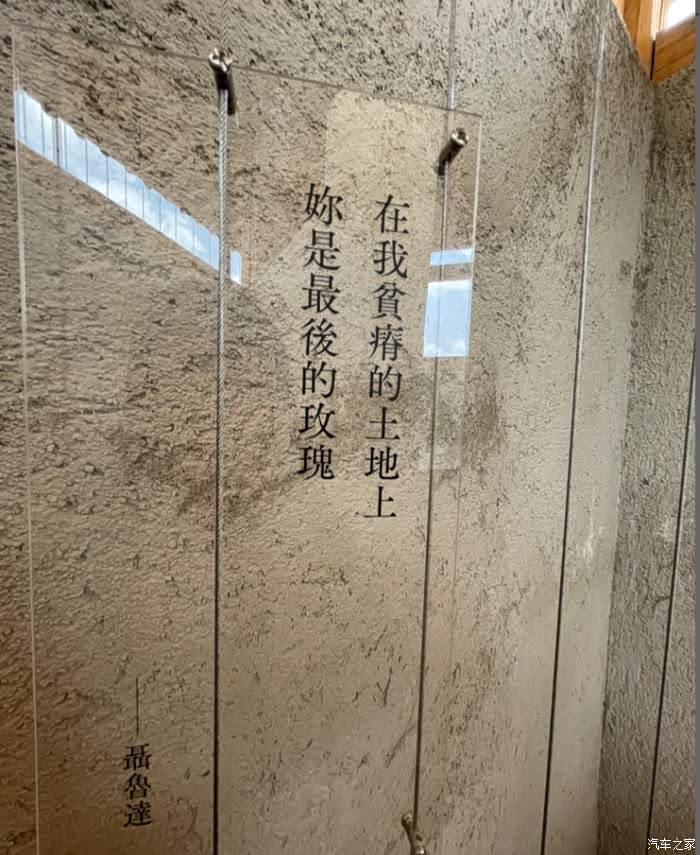 在我貧瘠的土地上
妳是最後的玫瑰
——聶魯達
汽车之家